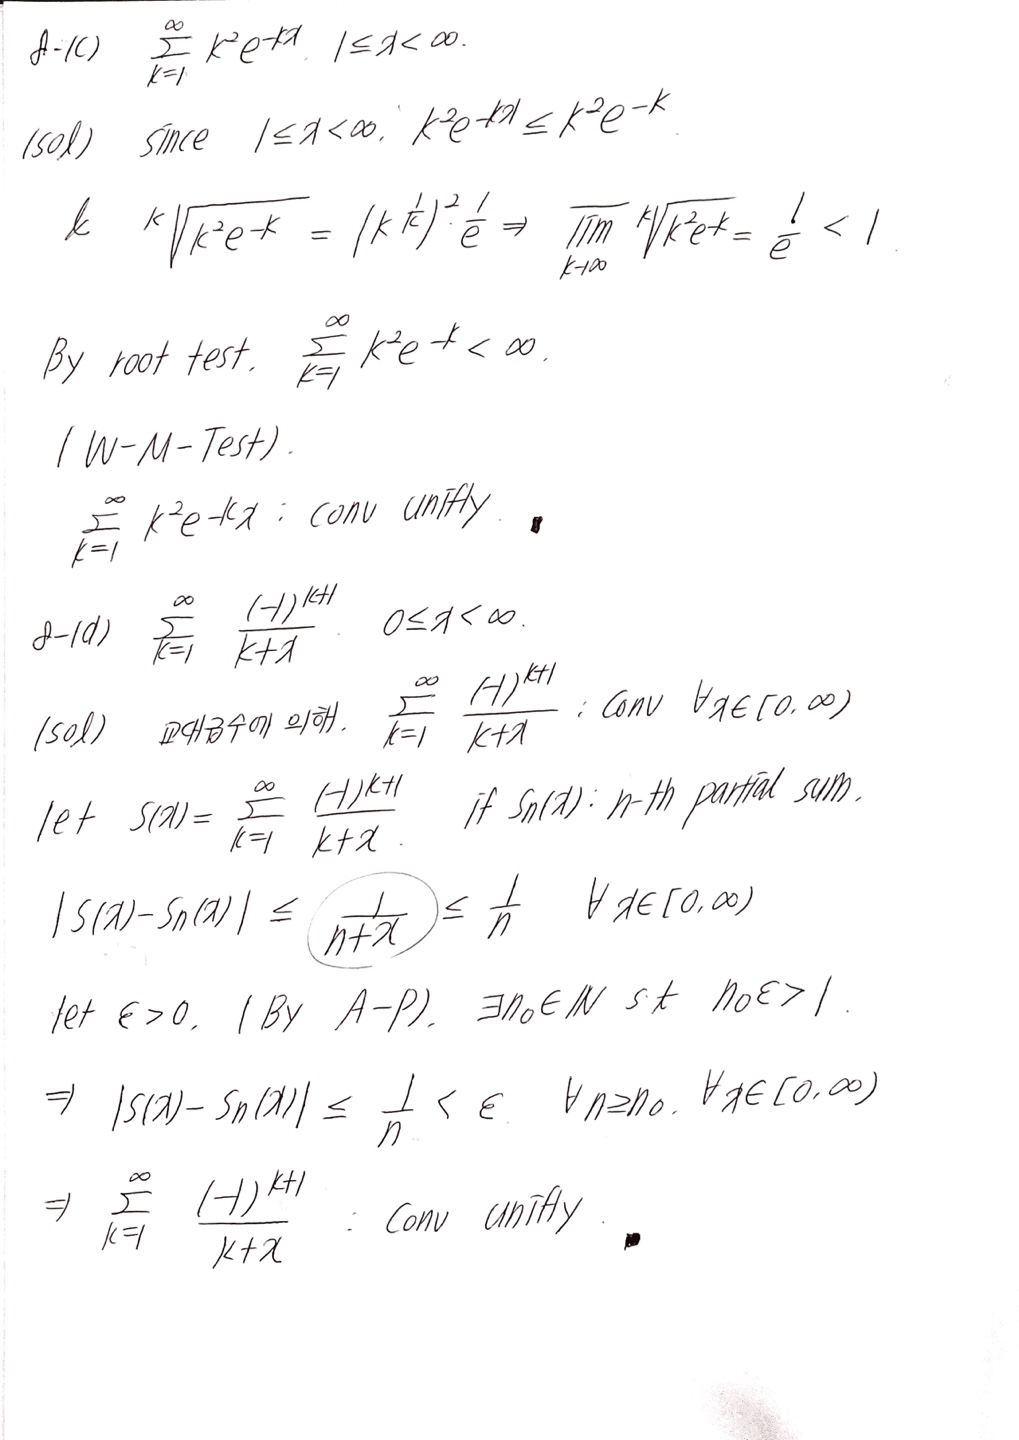 8-(c) $\sum_{k=1}^{\infty} k^2 e^{-kx}$. $1 \le x < \infty$.
(sol) since $1 \le x < \infty$. $k^2 e^{-kx} \le k^2 e^{-k}$.
& $\sqrt[k]{k^2 e^{-k}} = (k^{\frac{1}{k}})^2 \cdot \frac{1}{e} \Rightarrow \overline{\lim}_{k \to \infty} \sqrt[k]{k^2 e^{-k}} = \frac{1}{e} < 1$.
By root test. $\sum_{k=1}^{\infty} k^2 e^{-k} < \infty$.
(W-M-Test).
$\sum_{k=1}^{\infty} k^2 e^{-kx}$ : conv unifly.
8-(d) $\sum_{k=1}^{\infty} \frac{(-1)^{k+1}}{k+x}$. $0 \le x < \infty$.
(sol) 교대급수에 의해. $\sum_{k=1}^{\infty} \frac{(-1)^{k+1}}{k+x}$ : Conv $\forall x \in [0, \infty)$
let $S(x) = \sum_{k=1}^{\infty} \frac{(-1)^{k+1}}{k+x}$. if $S_n(x)$ : n-th partial sum.
$|S(x) - S_n(x)| \le \frac{1}{n+x} \le \frac{1}{n}$ $\forall x \in [0, \infty)$
let $\varepsilon > 0$. (By A-P). $\exists n_0 \in \mathbb{N}$ s.t $n_0 \varepsilon > 1$.
$\Rightarrow |S(x) - S_n(x)| \le \frac{1}{n} < \varepsilon$ $\forall n \ge n_0$. $\forall x \in [0, \infty)$
$\Rightarrow \sum_{k=1}^{\infty} \frac{(-1)^{k+1}}{k+x}$ : Conv unifly.